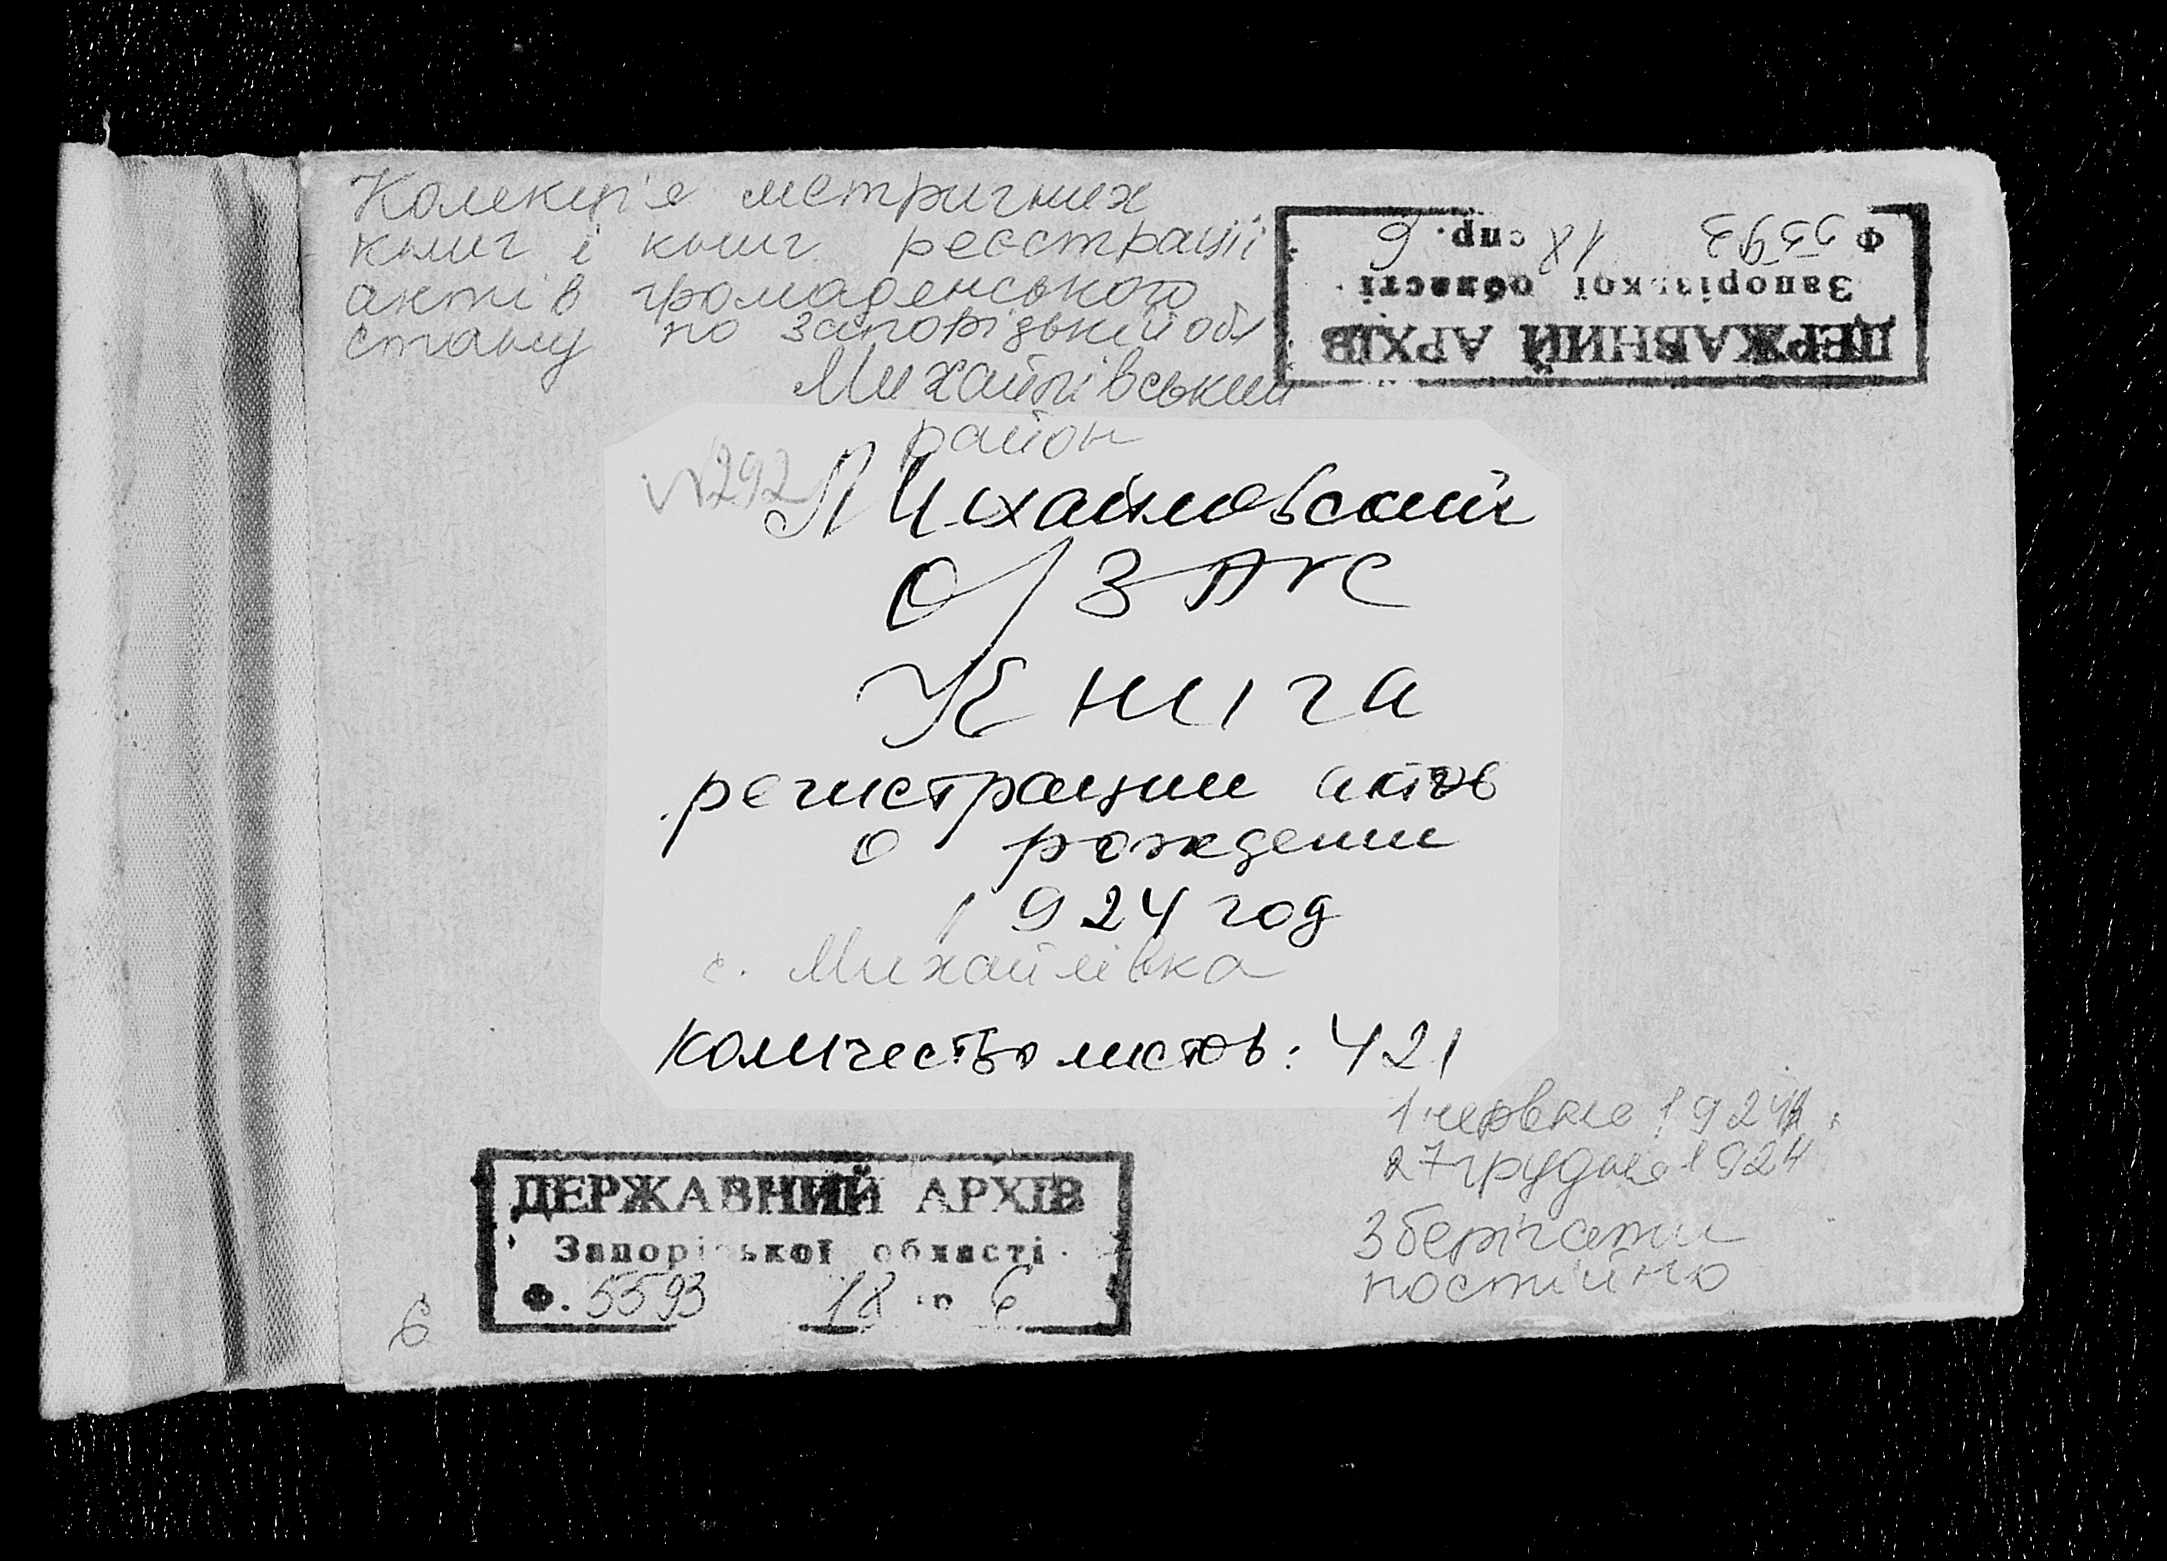 Колекція метричних
книг і книг реєстрації
актів громадянського
стану по Запорізькій обл
Михайлівський
район
ДЕРЖАВНИЙ АРХІВ
Запорізької області
Ф 5593 18 спр. 6
№292
Михайловский
О/ЗАГС
Книга
регистрации актов
о рождении
1924 год
с. Михайлівка
количество листов: 421
1 червня 1924
27 грудня 1924
Зберігати
постійно
ДЕРЖАВНИЙ АРХІВ
Запорізької області
Ф. 5593 18 6
6